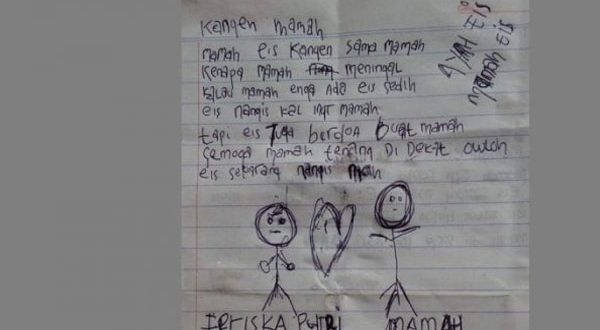 Kangen mamah
mamah eis Kangen sama mamah
Kenapa mamah meningal
kalau mamah enga ada eis sedih
eis nangis kal ingt mamah
tapi eis Juga berdoa buat mamah
semoga mamah tenang Di Dekat owloh
eis sekarang nangis mah
AYAH EIS
mamah EIS
PUTRI
MAMAH